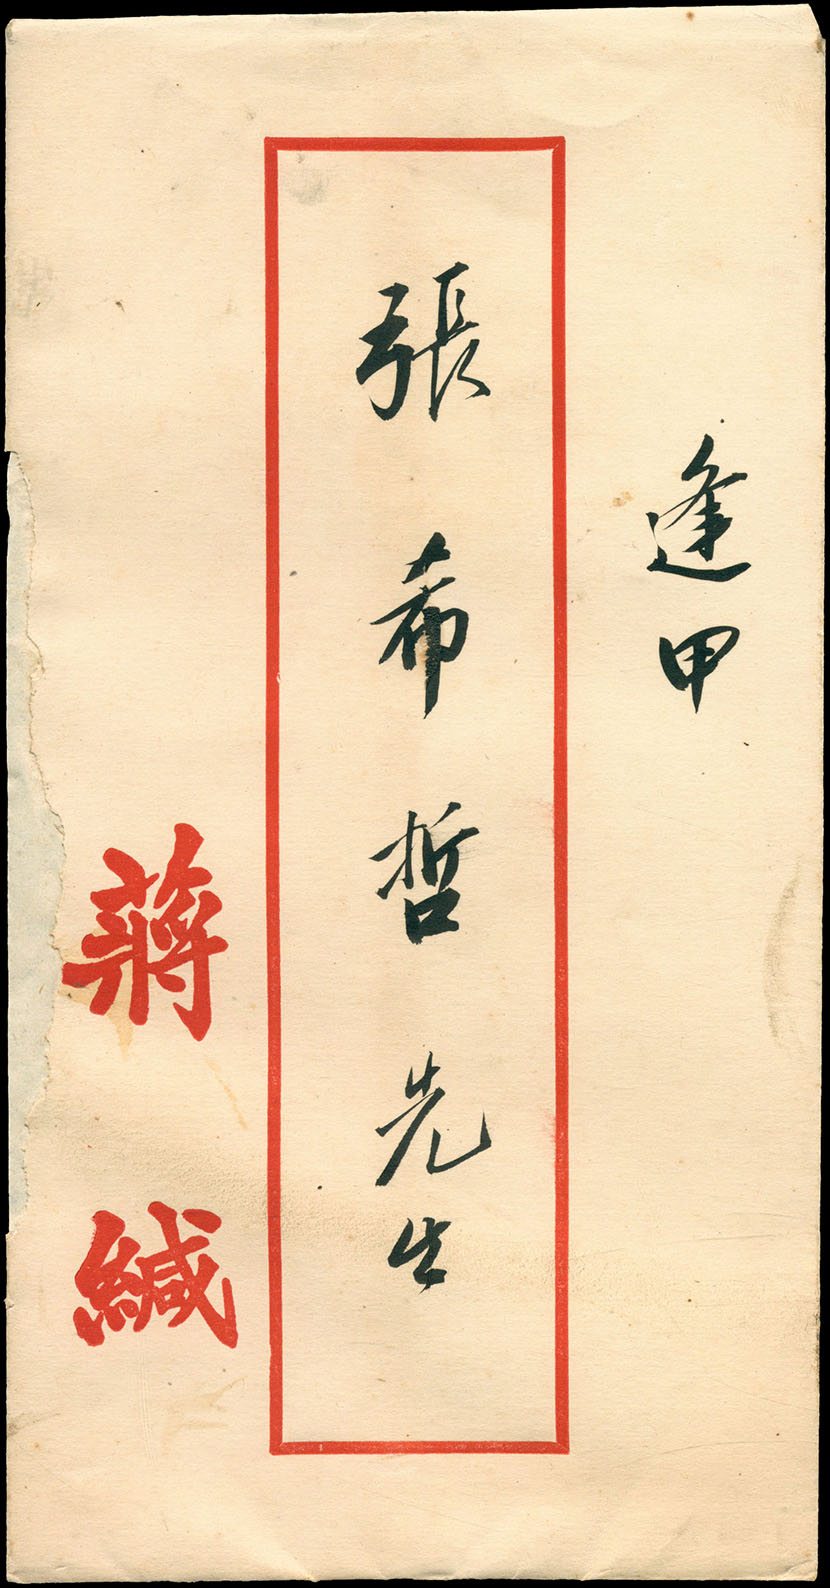 逢甲
張希哲先生
蔣緘